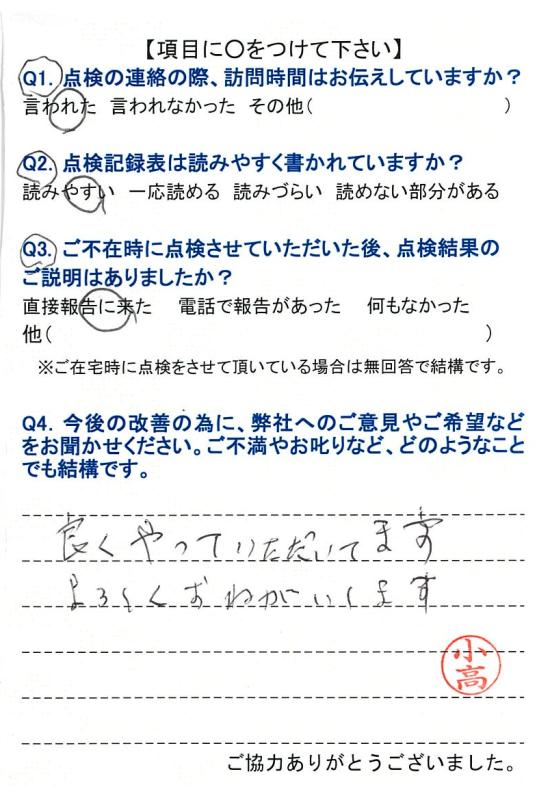 【項目に○をつけて下さい】
Q1. 点検の連絡の際、訪問時間はお伝えしていますか？
言われた 言われなかった その他( )
Q2. 点検記録表は読みやすく書かれていますか？
読みやすい 一応読める 読みづらい 読めない部分がある
Q3. ご不在時に点検させていただいた後、点検結果の
ご説明はありましたか？
直接報告に来た 電話で報告があった 何もなかった
他( )
※ご在宅時に点検をさせて頂いている場合は無回答で結構です。
Q4. 今後の改善の為に、弊社へのご意見やご希望など
をお聞かせください。ご不満やお叱りなど、どのようなこと
でも結構です。
良くやっていただいてます
よろしくおねがいします
小高
ご協力ありがとうございました。